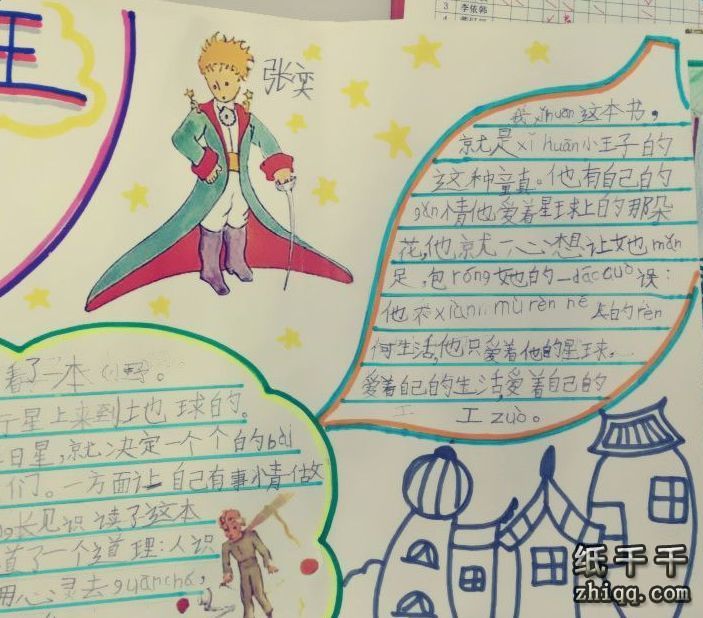 3 李依韩
王
张奕
我xǐhuan这本书，
就是xǐ huān小王子的
这种童真。他有自己的
gǎn情他爱着星球上的那朵
花，他就一心想让她mǎn
足，包róng她的一dàcuò误：
他不xiàn mù rèn 的rèn
何生活，他只爱着他的星球，
爱着自己的生活，爱着自己的
工 工zuò。
看了一本
行星上来到土也球的。
日星，就决定一个个的bài
们。一方面让自己有事情做
长见识读了这本
道了一个道理：人识
用心灵去guānchá，
纸千千
zhiqq.com